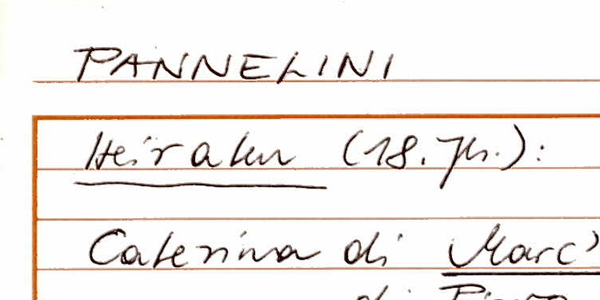 PANNELINI
Heiraten (18. Jh.):
Caterina di Marc'
di